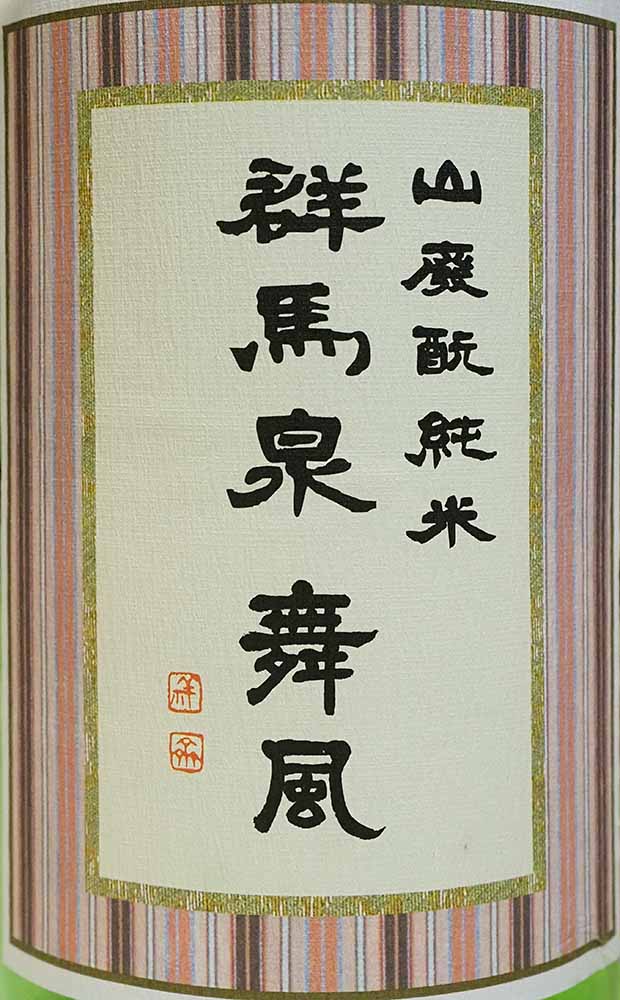 山廃酛純米
群馬泉 舞風